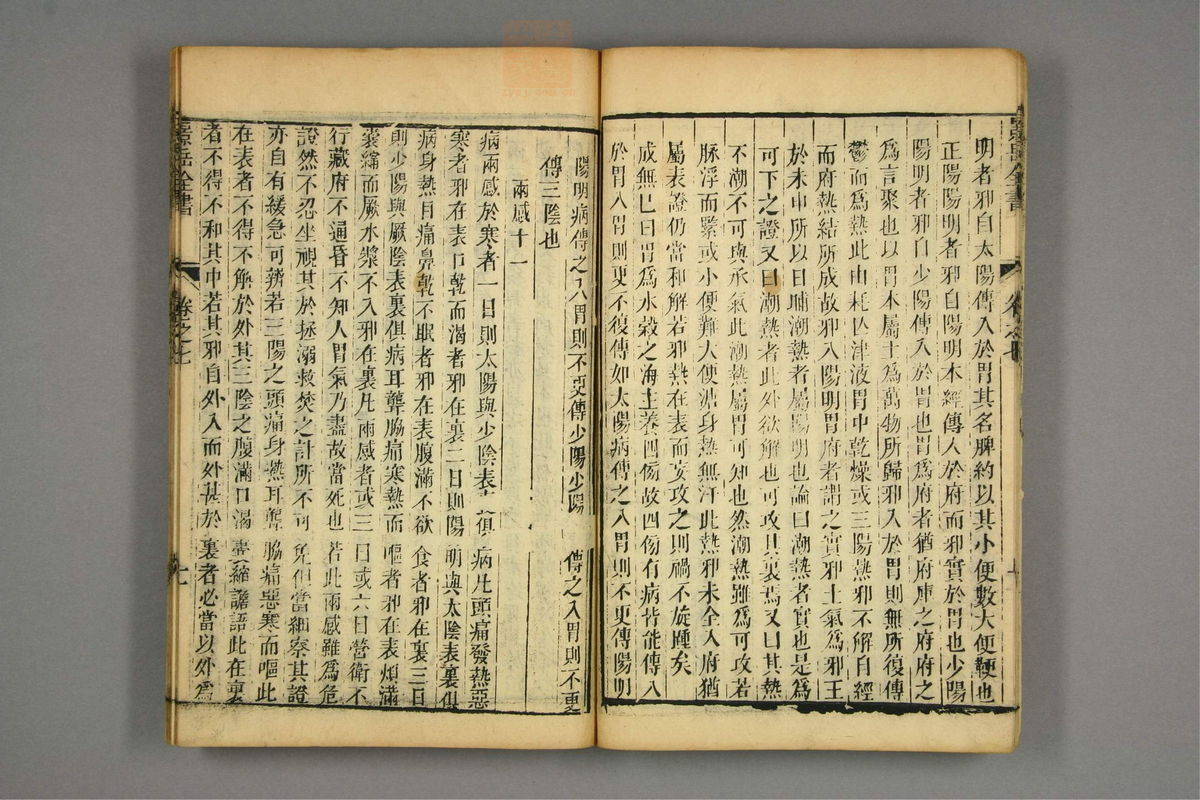 景岳全書
卷之七
明者邪自太陽傳入於胃其名脾約以其小便數大便鞕也
正陽陽明者邪自陽明本經傳入於府而邪實於胃也少陽
陽明者邪自少陽傳入於胃也胃為府者猶府庫之府府之
為言聚也以胃本屬土為萬物所歸邪入於胃則無所復傳
鬱而為熱此由耗亾津液胃中乾燥或三陽熱邪不解自經
而府熱結所成故邪入陽明胃府者謂之實邪土氣為邪王
於未申所以日晡潮熱者屬陽明也論曰潮熱者實也是為
可下之證又曰潮熱者此外欲解也可攻其裏焉又曰其熱
不潮不可與承氣此潮熱屬胃可知也然潮熱雖為可攻若
脉浮而緊或小便難大便溏身熱無汗此熱邪未全入府猶
屬表證仍當和解若邪熱在表而妄攻之則禍不旋踵矣
成無巳曰胃為水榖之海主養四傍故四傍有病皆能傳入
於胃入胃則更不復傳如太陽病傳之入胃則不更傳陽明
陽明病傳之入胃則不更傳少陽少陽 傳之入胃則不更
傳三陰也
兩感十一
病兩感於寒者一日則太陽與少陰表 俱病凡頭痛發熱惡
寒者邪在表口乾而渴者邪在裏二日則陽明與太陰表裏俱
病身熱目痛鼻乾不眠者邪在表腹滿不欲食者邪在裏三日
則少陽與厥陰表裏俱病耳聾脇痛寒熱而嘔者邪在表煩滿
囊縮而厥水漿不入邪在裏凡兩感者或三日或六日營衛不
行藏府不通昏不知人胃氣乃盡故當死也若此兩感雖為危
證然不忍坐視其於拯溺救焚之計所不可免但當細察其證
亦自有緩急可辨若三陽之頭痛身熱耳聾脇痛惡寒而嘔此
在表者不得不解於外其三陰之腹滿口渴囊縮譫語此在裏
者不得不和其中若其邪自外入而外甚於裏者必當以外為
景岳全書
卷之七